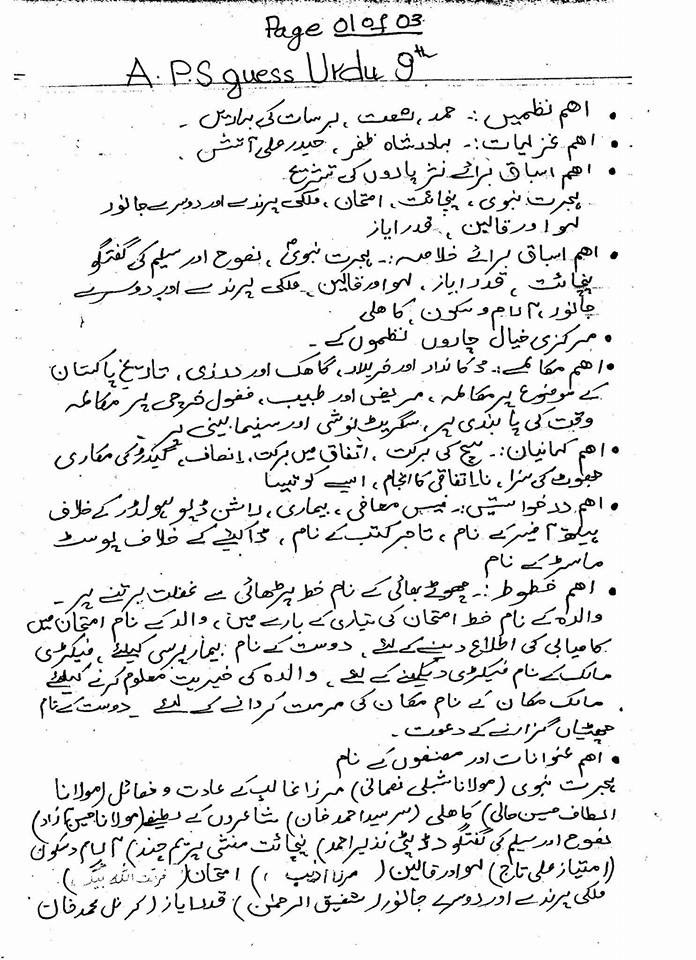 Page 01 of 03
A.P.S guess Urdu 9th
• اھم نظمیں :۔ حمد، نعت، برسات کی بہاریں ۔
• اھم غزلیات :۔ بہادر شاہ ظفر، حیدر علی آتش
• اھم اسباق برائے نثر پاروں کی تشریح
ہجرت نبوی، پنچائت، امتحان، ملکی پرندے اور دوسرے جانور
لہو اور قالین، قدر ایاز
• اھم اسباق برائے خلاصہ :۔ ہجرت نبوی، نصوح اور سلیم کی گفتگو
پنچائت، قدر ایاز، لہو اور قالین، ملکی پرندے اور دوسرے
جانور، آرام و سکون، کاھلی
• مرکزی خیال چاروں نظموں کے ۔
• اھم مکالمے :۔ دکاندار اور خریدار، گاھک اور درزی، تاریخ پاکستان
کے موضوع پر مکالمہ، مریض اور طبیب، فضول خرچی پر مکالمہ
وقت کی پابندی پر، سگریٹ نوشی اور سینما بینی پر
• اھم کہانیاں :۔ سچ کی برکت، اتفاق میں برکت، انصاف، گیدڑ کی مکاری
جھوٹ کی سزا، نااتفاقی کا انجام، ایسے کو تیسا
• اھم درخواستیں :۔ فیس معافی، بیماری، راشن ڈپو ہولڈر کے خلاف
ہیلتھ آفیسر کے نام، تاجر کتب کے نام، ڈاکیے کے خلاف پوسٹ
ماسٹر کے نام
• اھم خطوط :۔ چھوٹے بھائی کے نام خط پڑھائی سے غفلت برتنے پر ۔
والدہ کے نام خط امتحان کی تیاری کے بارے میں، والد کے نام امتحان میں
کامیابی کی اطلاع دینے کے لئے، دوست کے نام بیمار پرسی کیلئے، فیکٹری
مالک کے نام فیکٹری دیکھنے کے لئے، والدہ کی خیریت معلوم کرنے کیلئے
مالک مکان کے نام مکان کی مرمت کروانے کے لئے ۔ دوست کے نام
چھٹیاں گزارنے کے دعوت ۔
• اھم عنوانات اور مصنفوں کے نام
ہجرت نبوی (مولانا شبلی نعمانی) مرزا غالب کے عادت و خصائل (مولانا
الطاف حسین حالی) کاھلی (سر سید احمد خان) شاعروں کے لطیفے (مولانا حسین آزاد)
نصوح اور سلیم کی گفتگو (ڈپٹی نذیر احمد) پنچائت منشی پریم چند) آرام و سکون
(امتیاز علی تاج) لہو اور قالین (مرزا ادیب) امتحان (فرحت اللہ بیگ)
ملکی پرندے اور دوسرے جانور (شفیق الرحمٰن) قدر ایاز (کرنل محمد خان